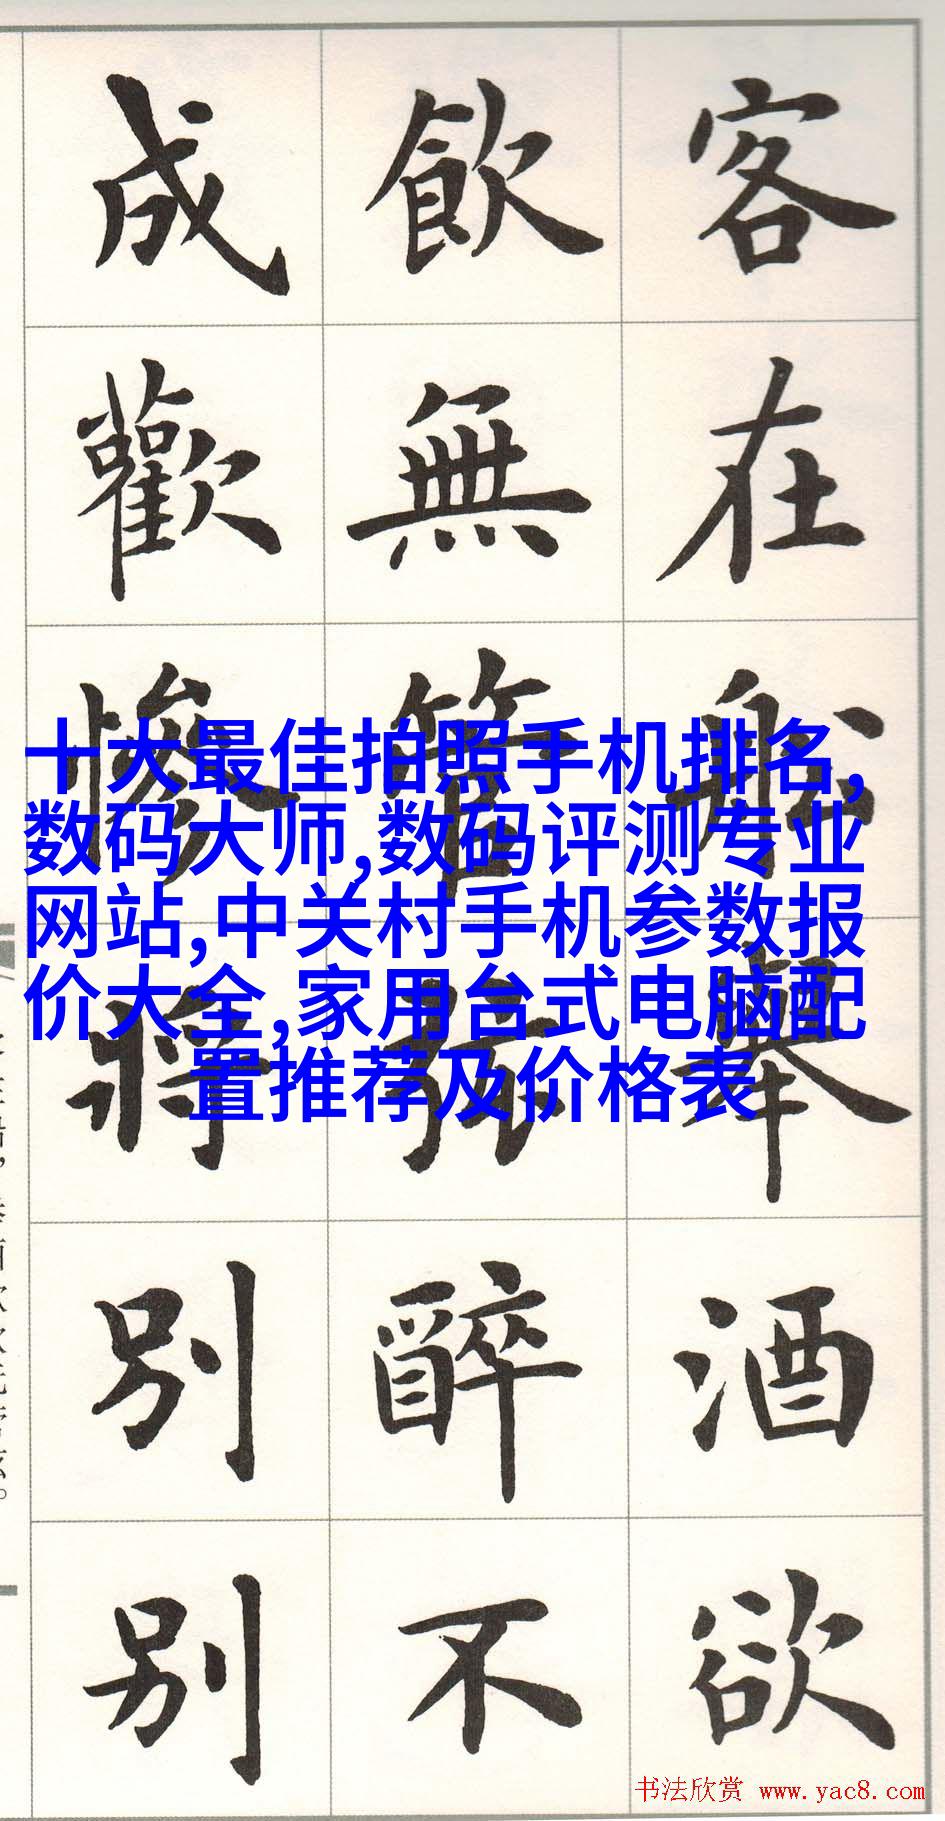 客在船舉酒欲
飲無管弦醉不
成歡慘將別別
十大最佳拍照手机排名,
数码大师,数码评测专业
网站,中关村手机参数报
价大全,家用台式电脑配
置推荐及价格表
书法欣赏 www.yac8.com